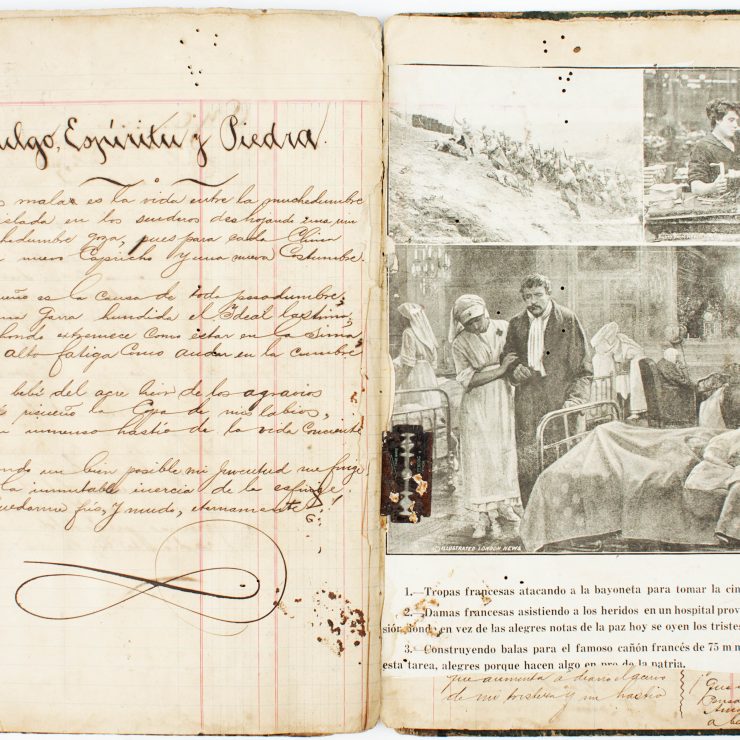 ulgo, Espíritu y Piedra.
s mala es la vida entre la muchedumbre
islada en los senderos deshojando una, un
hedumbre goza, pues para cada
nuevo Capricho y una nueva Costumbre.
ueño es la causa de toda pesadumbre,
na garra hundida el Ideal
hondo estremece como estar en la sima
alto fatiga como andar en la cumbre
bebí del acre bien de los agravios
risueño la Copa de mis labios,
inmenso hastío de la vida conciente
ndo un bien posible mi juventud me finge
la inmutable inercia de la esfinge.
uedarme frío, y mudo, eternamente!
ILLUSTRATED LONDON NEWS
1.—Tropas francesas atacando a la bayoneta para tomar la cim
2.—Damas francesas asistiendo a los heridos en un hospital prov
sión donde en vez de las alegres notas de la paz hoy se oyen los tristes
3.—Construyendo balas para el famoso cañón francés de 75 m m
esta tarea, alegres porque hacen algo en pro de la patria.
que aumenta a diario el acervo
de mi tristeza y mi hastío